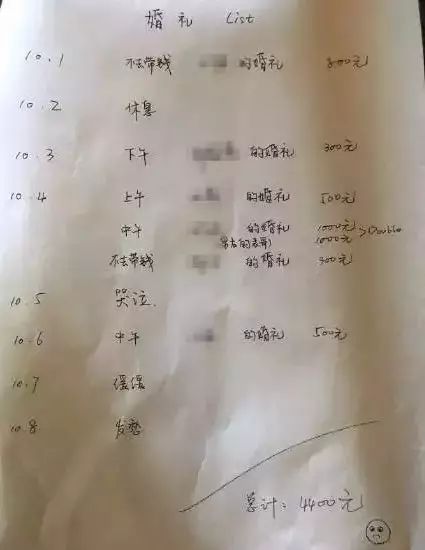 婚礼 List
10.1 不去带钱 的婚礼 800元
10.2 休息
10.3 下午 的婚礼 300元
10.4 上午 的婚礼 500元
中午 的婚礼 1000元 >Double
男友的表哥) 1000元
不去带钱 的婚礼 300元
10.5 哭泣.
10.6 中午 的婚礼 500元
10.7 缓缓
10.8 发愁
总计: 4400元